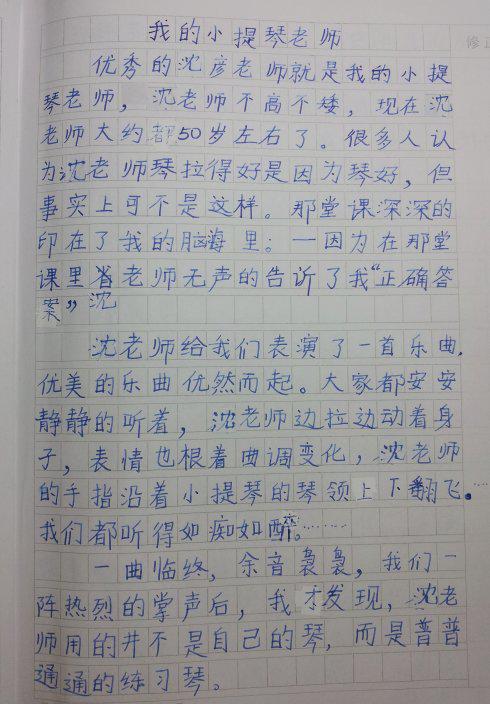 我的小提琴老师
优秀的沈彦老师就是我的小提
琴老师，沈老师不高不矮，现在沈
老师大约都50岁左右了。很多人认
为沈老师琴拉得好是因为琴好，但
事实上可不是这样。那堂课深深的
印在了我的脑海里：—因为在那堂
课里老师无声的告诉了我“正确答
案”沈
沈老师给我们表演了一首乐曲，
优美的乐曲优然而起。大家都安安
静静的听着，沈老师边拉边动着身
子，表情也根着曲调变化，沈老师
的手指沿着小提琴的琴领上下翻飞。…
我们都听得如痴如醉。……
一曲临终，余音袅袅，我们一
阵热烈的掌声后，我才发现，沈老
师用的并不是自己的琴，而是普普
通通的练习琴。